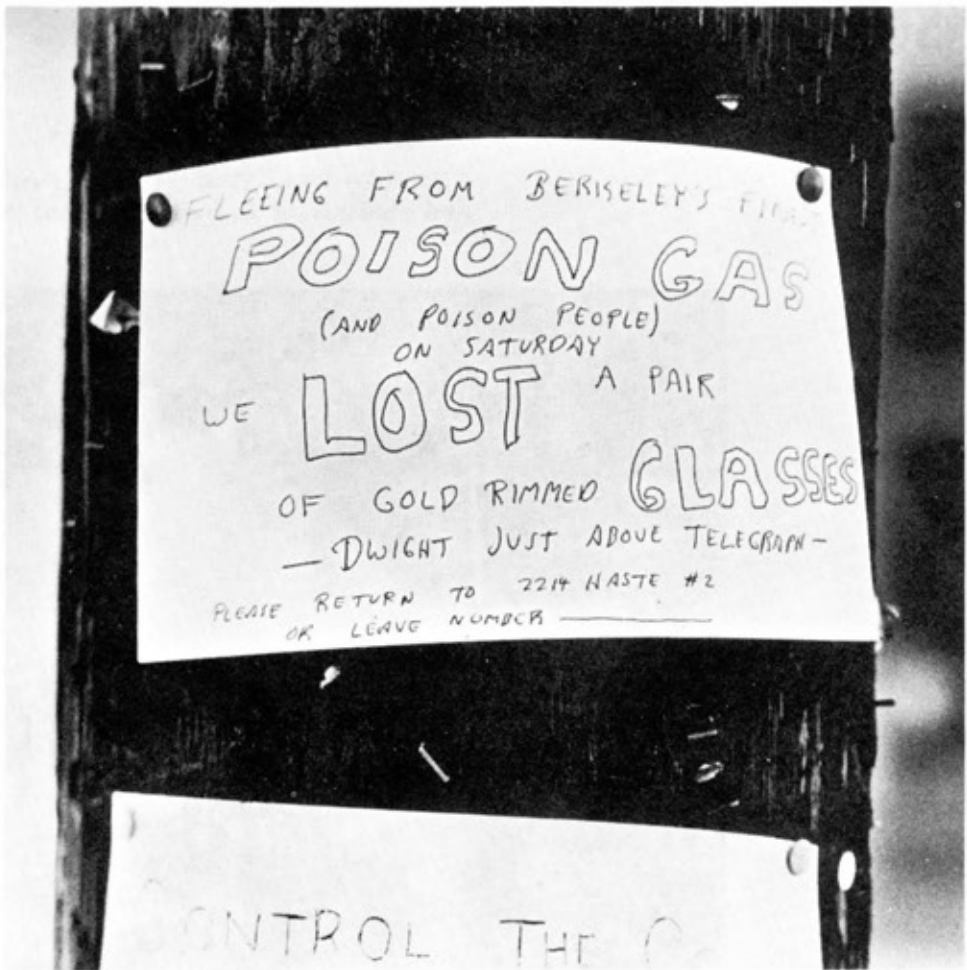 FLEEING FROM BERKSELEY'S FIRST
POISON GAS
(AND POISON PEOPLE)
ON SATURDAY
WE LOST A PAIR
OF GOLD RIMMED GLASSES
— DWIGHT JUST ABOVE TELEGRAPH —
PLEASE RETURN TO 2214 HASTE #2
OR LEAVE NUMBER ————
CONTROL THE